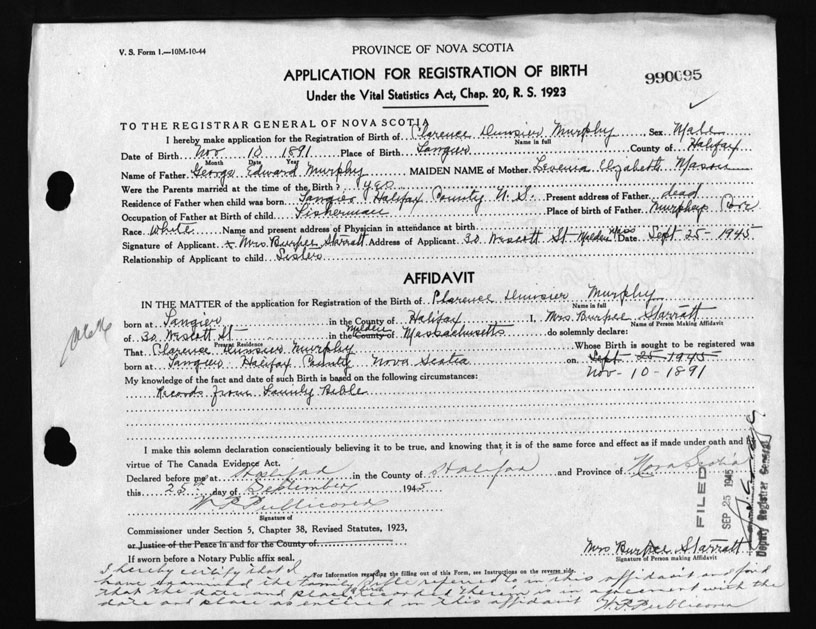 V. S. Form 1.—10M-10-44
PROVINCE OF NOVA SCOTIA
APPLICATION FOR REGISTRATION OF BIRTH
990695
Under the Vital Statistics Act, Chap. 20, R. S. 1923
TO THE REGISTRAR GENERAL OF NOVA SCOTIA
I hereby make application for the Registration of Birth of Clarence Murphy Sex Male
Name in full
Date of Birth Nov 10 1891 Place of Birth Tangier County of Halifax
Month Date Year
Name of Father George Edward Murphy MAIDEN NAME of Mother Levenia Elizabeth Mason
Were the Parents married at the time of the Birth? yes
Residence of Father when child was born Tangier Halifax County N. S. Present address of Father dead
Occupation of Father at Birth of child Fisherman Place of Birth of Father Murphys Cove
Race White Name and present address of Physician in attendance at birth
Signature of Applicant x Mrs Burpee Starratt Address of Applicant 30 Wescott St Malden Mass Date Sept 25-1945
Relationship of Applicant to child Sister
AFFIDAVIT
IN THE MATTER of the application for Registration of the Birth of Clarence Murphy
Name in full
born at Tangier in the County of Halifax I, Mrs. Burpee Starratt
Name of Person Making Affidavit
of 30 Wescott St Malden in the County of Massachusetts do solemnly declare:
Present Residence
That Clarence Murphy Whose Birth is sought to be registered was
born at Tangier Halifax County Nova Scotia on Sept 25-1945
Nov-10-1891
My knowledge of the fact and date of such Birth is based on the following circumstances:
Records from Family Bible
I make this solemn declaration conscientiously believing it to be true, and knowing that it is of the same force and effect as if made under oath and by
virtue of The Canada Evidence Act.
Declared before me at Halifax in the County of Halifax and Province of Nova Scotia
this 25th day of September 1945
Signature of
Commissioner under Section 5, Chapter 38, Revised Statutes, 1923,
or Justice of the Peace in and for the County of
If sworn before a Notary Public affix seal.
FILED
SEP 25 1945
Deputy Registrar General
Mrs Burpee Starratt
Signature of Person making Affidavit
For Information regarding the filling out of this Form, see Instructions on the reverse side.
I hereby certify that I
have examined the family Bible referred to in this affidavit and find
that the date and place of birth recorded therein is in agreement with the
date and place as entered in this affidavit